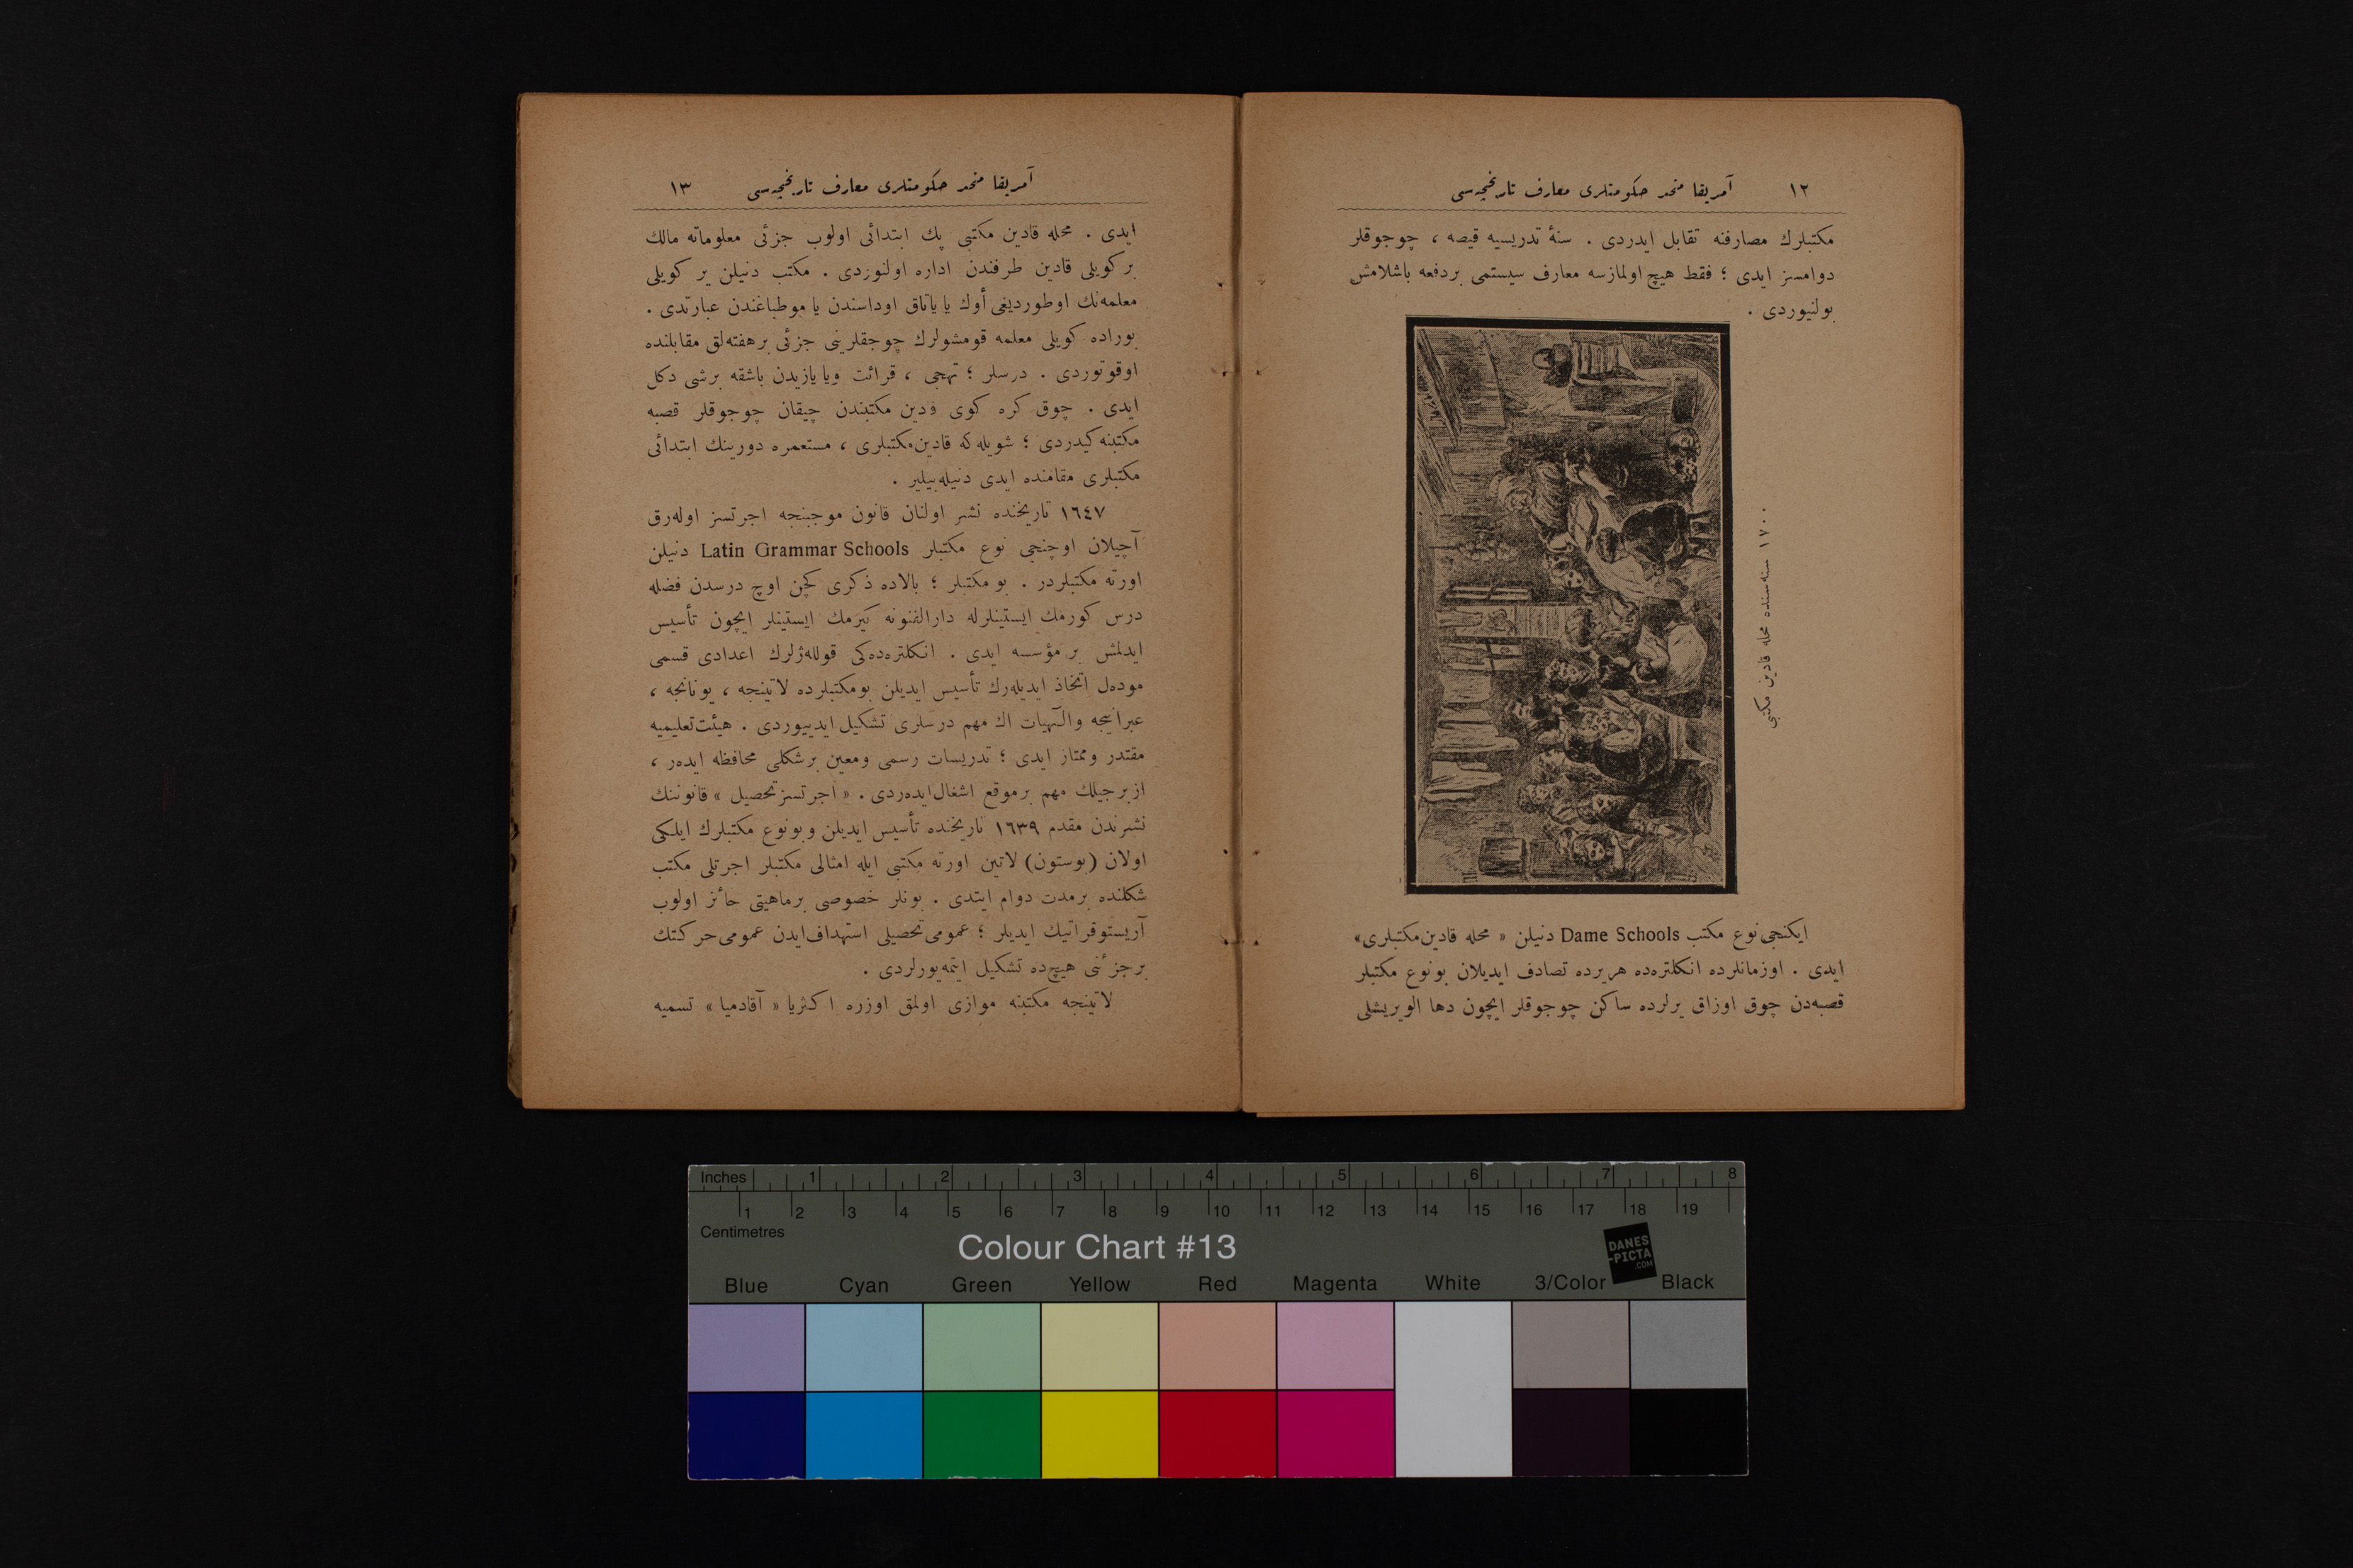 ١٢ آمریقا متحد حکومتلری معارف تاریخچه‌سی
مکتبلرك مصارفنه تقابل ایدردی . سنهٔ تدریسیه قیصه ، چوجوقلر
دوامسز ایدی ؛ فقط هیچ اولمازسه معارف سیستمی بردفعه باشلامش
بولنیوردی .
١٧٠٠ سنه‌سنده محله قادین مکتبی
ایکنجی نوع مکتب Dame Schools دنیلن « محله قادین مکتبلری»
ایدی . اوزمانلرده انکلتره‌ده هریرده تصادف ایدیلان بونوع مکتبلر
قصبه‌دن چوق اوزاق یرلرده ساکن چوجوقلر ایچون دها الویریشلی
آمریقا متحد حکومتلری معارف تاریخچه‌سی ١٣
ایدی . محله قادین مکتبی پك ابتدائی اولوب جزئی معلوماته مالك
بر کویلی قادین طرفندن اداره اولنوردی . مکتب دنیلن یر کویلی
معلمه‌نك اوطوردیغی أوك یا یاتاق اوداسندن یا موطباغندن عبارتدی .
بوراده کویلی معلمه قومشولرك چوجقلرینی جزئی برهفته‌لق مقابلنده
اوقوتوردی . درسلر ؛ تهجی ، قرائت ویا یازیدن باشقه برشی دکل
ایدی . چوق کره کوی قادین مکتبندن چیقان چوجوقلر قصبه
مکتبنه کیدردی ؛ شویله که قادین مکتبلری ، مستعمره دورینك ابتدائی
مکتبلری مقامنده ایدی دنیله‌بیلیر .
١٦٤٧ تاریخنده نشر اولنان قانون موجبنجه اجرتسز اوله‌رق
آچیلان اوچنجی نوع مکتبلر Latin Grammar Schools دنیلن
اورته مکتبلردر . بو مکتبلر ؛ بالاده ذکری کچن اوچ درسدن فضله
درس کورمك ایستینلرله دارالفنونه کیرمك ایستینلر ایچون تأسیس
ایدلمش بر مؤسسه ایدی . انکلتره‌ده‌کی قوله‌ژلرك اعدادی قسمی
موده‌ل اتخاذ ایدیله‌رك تأسیس ایدیلن بومکتبلرده لاتینجه ، یونانجه ،
عبرانیجه والٓهیات اك مهم درسلری تشکیل ایدییوردی . هیئت تعلیمیه
مقتدر وممتاز ایدی ؛ تدریسات رسمی ومعین برشکلی محافظه ایده‌ر ،
ازبرجیلك مهم برموقع اشغال ایده‌ردی . « اجرتسز تحصیل » قانوننك
نشرندن مقدم ١٦٣٩ تاریخنده تأسیس ایدیلن وبونوع مکتبلرك ایلکی
اولان (بوستون) لاتین اورته مکتبی ایله امثالی مکتبلر اجرتلی مکتب
شکلنده برمدت دوام ایتدی . بونلر خصوصی برماهیتی حائز اولوب
آریستوقراتیك ایدیلر ؛ عمومی تحصیلی استهداف ایدن عمومی حرکتك
برجزئنی هیچ‌ده تشکیل ایتمه‌یورلردی .
لاتینجه مکتبنه موازی اولمق اوزره اکثریا « آقادمیا » تسمیه
Inches 1 2 3 4 5 6 7 8
1 2 3 4 5 6 7 8 9 10 11 12 13 14 15 16 17 18 19
Centimetres
Colour Chart #13
DANES
-PICTA
.COM
Blue Cyan Green Yellow Red Magenta White 3/Color Black